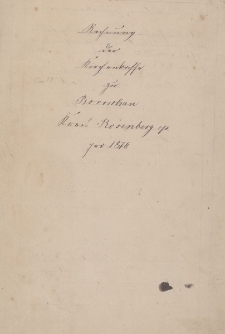 Rechnung
der
Kirchenkasse
zu
Kreis Rosenberg
pro 1876